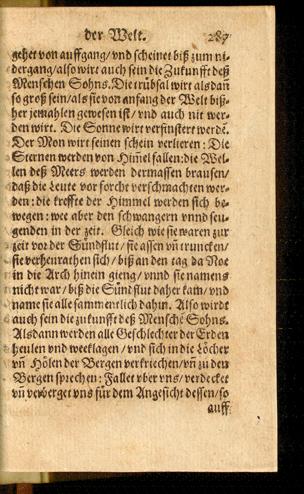 der Welt. 287
gehet von auffgang/ vnd scheinet biß zum ni-
dergang/ also wirt auch sein die Zukunfft deß
Menschen Sohns. Die trübsal wirt als dañ
so groß sein/ als sie von anfang der Welt biß-
her jemahlen gewesen ist/ vnd auch nit wer-
den wirt. Die Sonne wirt verfinstert werdē.
Der Mon wirt seinen schein verlieren: Die
Sternen werden von Him̃el fallen: die Wel-
len deß Meers werden dermassen brausen/
daß die Leute vor forcht verschmachten wer-
den: die kreffte der Himmel werden sich be-
wegen: wee aber den schwangern vnnd seu-
genden in der zeit. Gleich wie sie waren zur
zeit vor der Sündflut/ sie assen vñ truncken/
sie verheyrathen sich/ biß an den tag da Noe
in die Arch hinein gieng/ vnnd sie namens
nicht war/ biß die Sündflut daher kam/ vnd
name sie alle sammentlich dahin. Also wirdt
auch sein die zukunfft deß Menschē Sohns.
Alsdann werden alle Geschlechter der Erden
heulen vnd weeklagen/ vnd sich in die Löcher
vñ Hölen der Bergen verkriechen/ vñ zu den
Bergen sprechen: Fallet vber vns/ verdecket
vñ verberget vns für dem Angesicht dessen/ so
auff